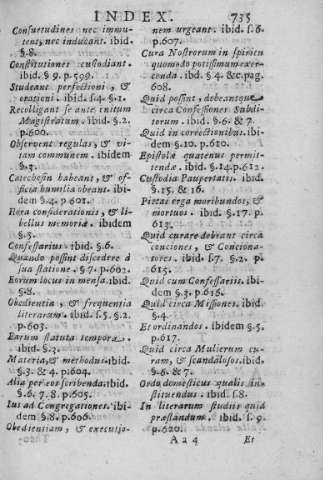 INDEX. 735
Consuetudines nec immu-
tent, nec inducant. ibid.
§.8.
Constitutiones custodiant.
ibid. §. 9. p.599.
Studeant perfectioni, &
orationi. ibid. §4. §.1.
Recolligant se ante initum
Magistratum. ibid. §.2.
p.600.
Observent regulas, & vi-
tam communem. ibidem
§.3.
Catechesin habeant, & of-
ficia humilia obeant. ibi-
dem §.4. p.601.
Hora considerationis, & li-
bellus memoriæ. ibidem
§.5.
Confessarius. ibid. §.6.
Quando possint discedere à
sua statione. §. 7. p.602.
Eorum locus in mensa. ibid.
§.8.
Obedientia, & frequentia
literarum. ibid. §.5. §.2.
p.603.
Earum statuta tempora.
ibid. §.3.
Materia, & methodus. ibid.
§.3. & 4. p.604.
Alia per eos scribenda. ibid.
§.6. 7. 8. p.605.
Ius ad Congregationes. ibi-
dem §.8. p.606.
Obedientiam, & executio-
nem urgeant. ibid. §.6.
p.607.
Cura Nostrorum in spiritu
quomodo potissimum exer-
cenda. ibid. §.4. &c. pag.
608.
Quid possint, debeantque
circa Confessiones Subdi-
torum. ibid. §.6. & 7.
Quid in correctionibus. ibi-
dem §.10. p.610.
Epistolæ quatenus permit-
tendæ. ibid. §.14. p.612.
Custodia Paupertatis. ibid.
§.15. & 16.
Pietas erga moribundos, &
mortuos. ibid. §.17. p.
613.
Quid curare debeant circa
conciones, & Conciona-
tores. ibid. §.7. §.2. p.
615.
Quid cum Confessariis. ibi-
dem §.3. p.616.
Quid circa Missiones. ibid.
§.4.
Et ordinandos. ibidem §.5.
p.617.
Quid circa Mulierum cu-
ram, & scandalosos. ibid.
§.6. & 7.
Ordo domesticus qualis in-
stituendus. ibid. §.8.
In literarum studiis quid
præstandum. ibid. §.9.
p.620.
Aa4 Et